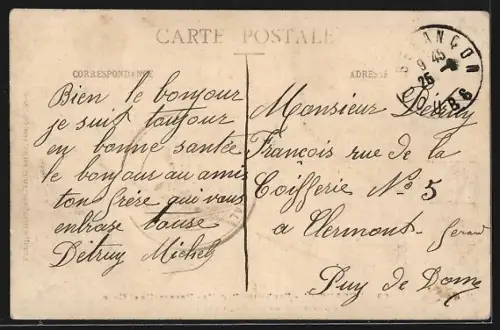 CARTE POSTALE
CORRESPONDANCE
ADRESSE
BESANÇON
9 45
26
DOUBS
Bien le bonjour
je suit toujour
en bonne santée
le bonjour au amis
ton frère qui vous
enbrase touse
Détruy Michel
Monsieur Détruy
François rue de la
Coifferie No 5
a Clermont-Ferrand
Puy de Dome